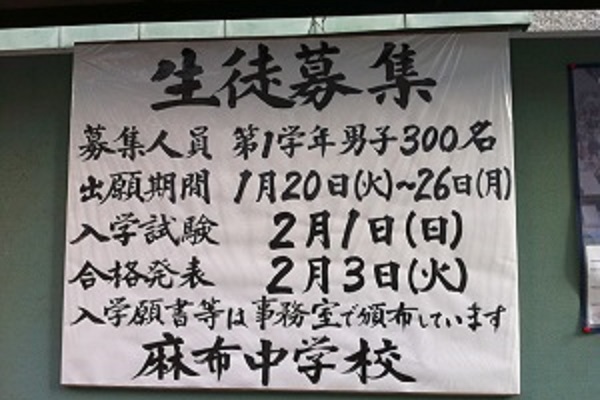 生徒募集
募集人員 第1学年男子300名
出願期間 1月20日(火)~26日(月)
入学試験 2月1日(日)
合格発表 2月3日(火)
入学願書等は事務室で頒布しています
麻布中学校